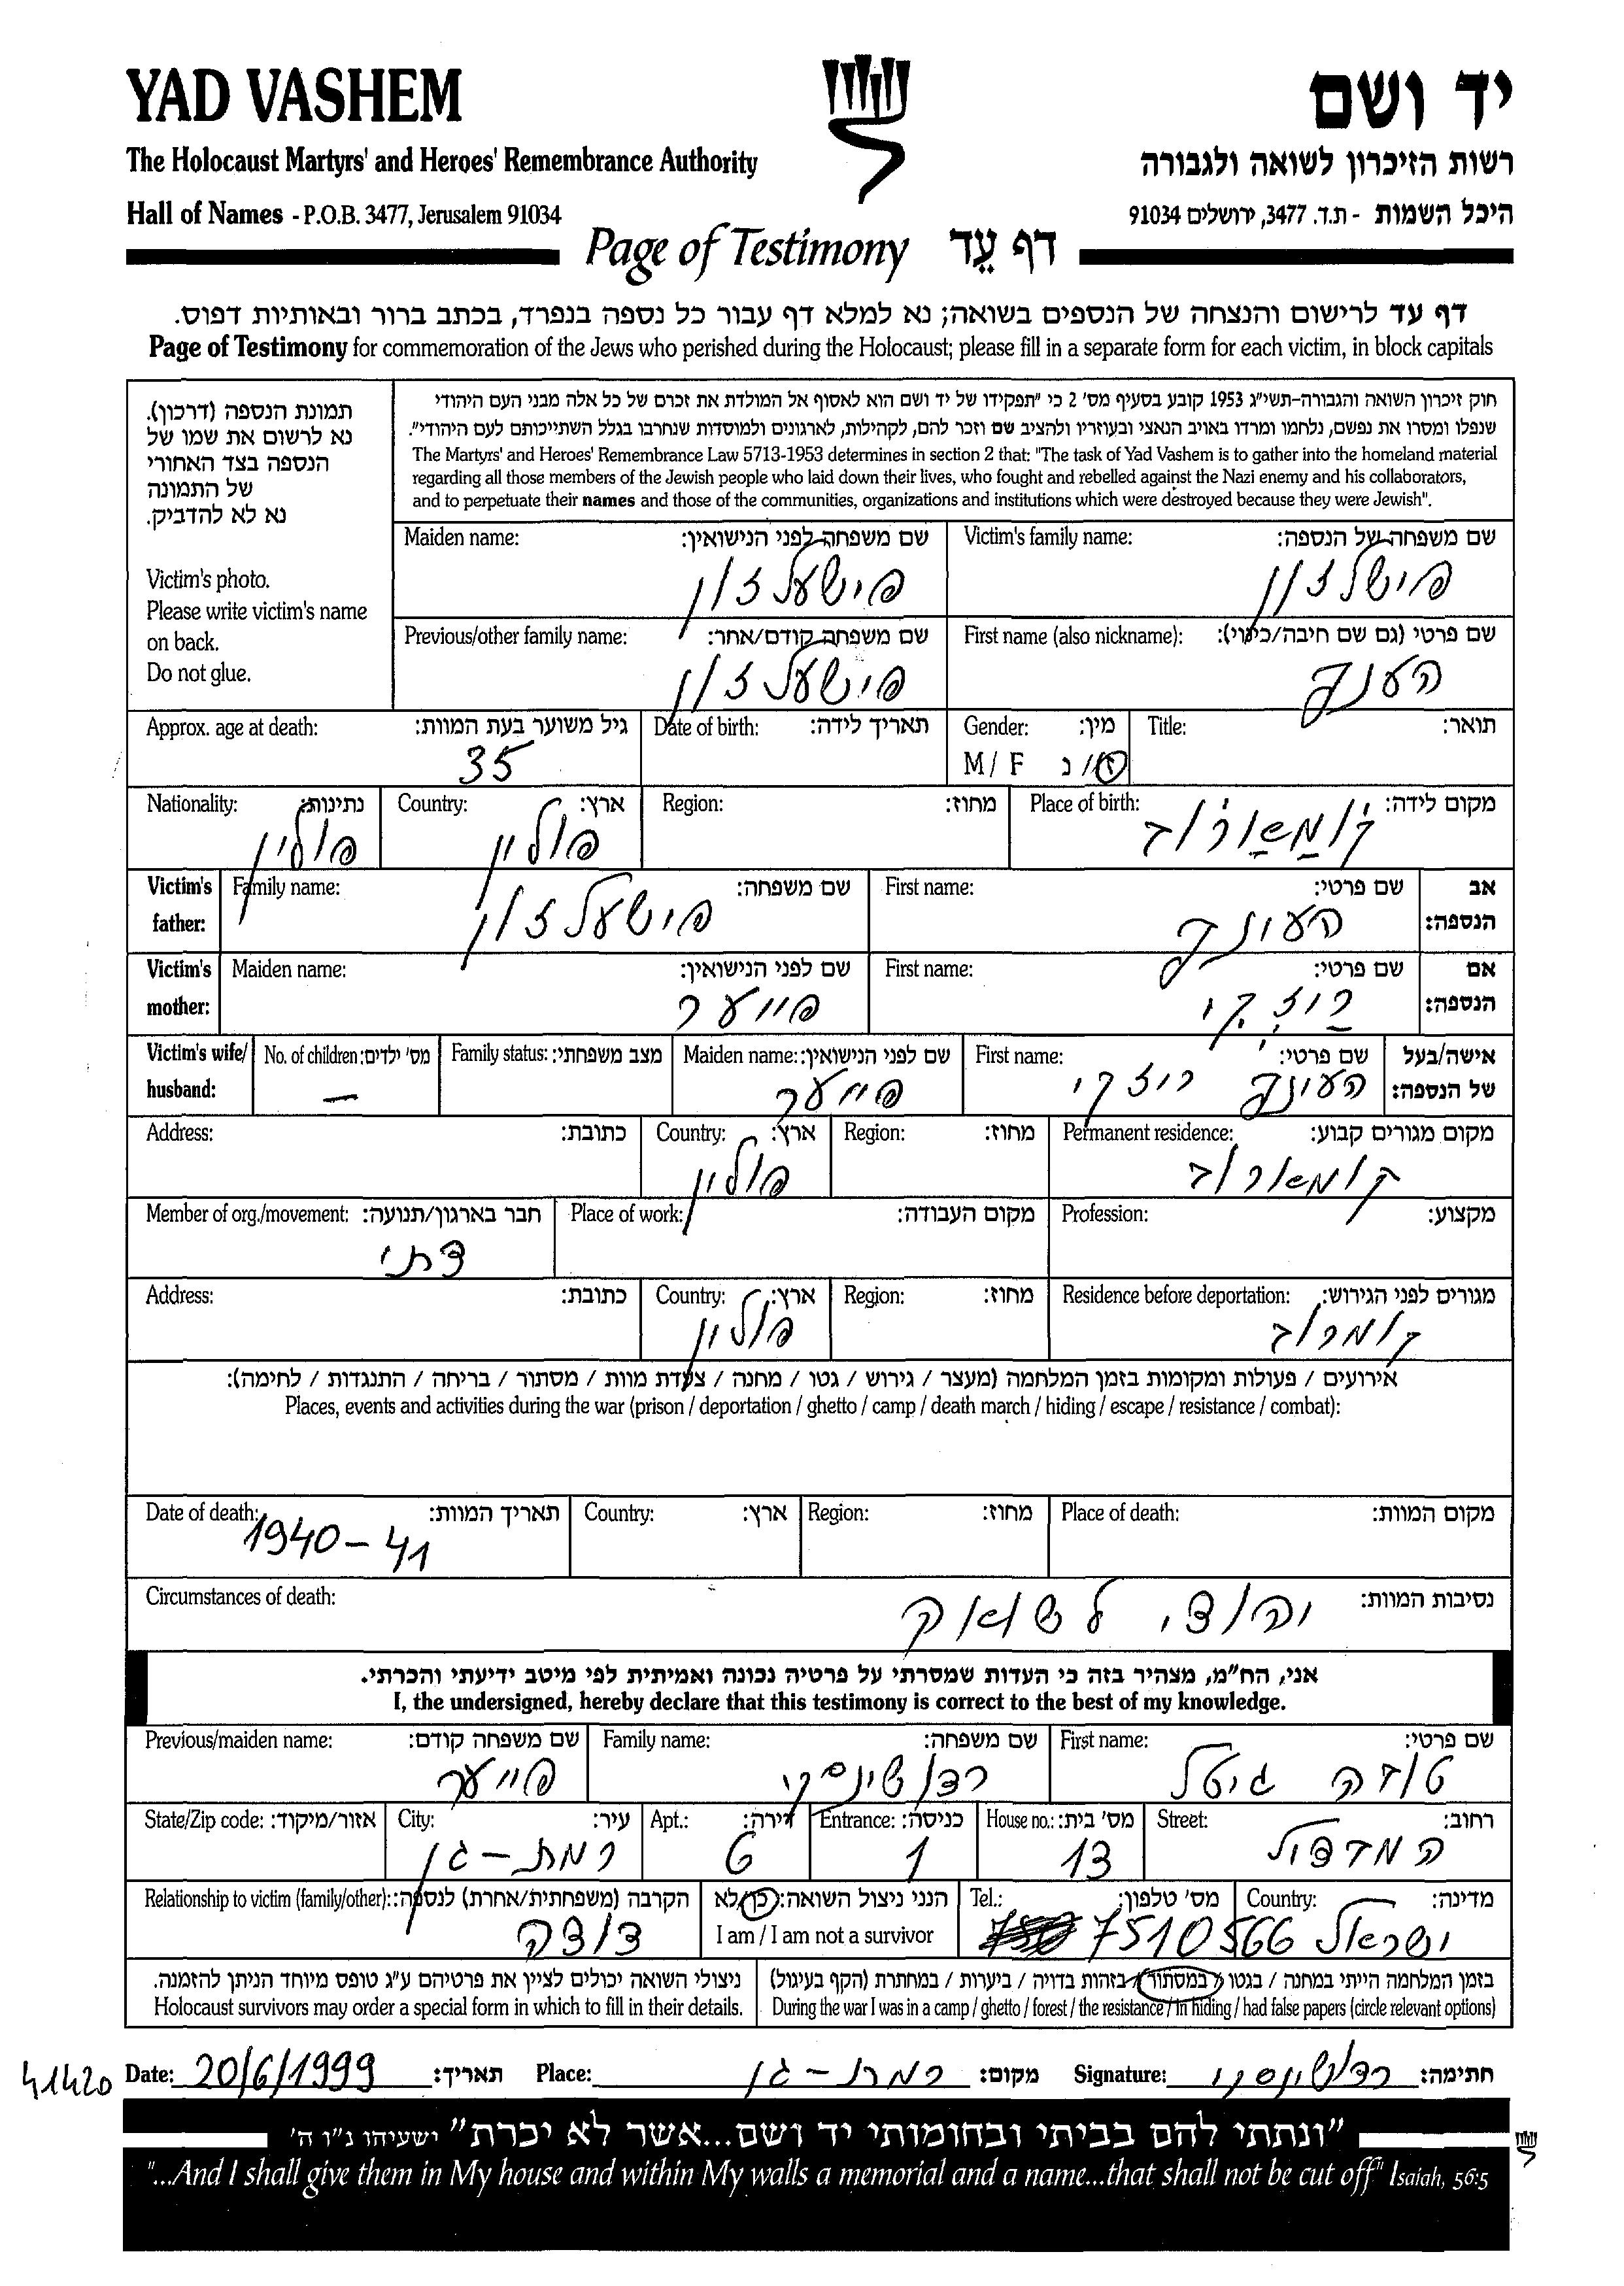 YAD VASHEM
יד ושם
The Holocaust Martyrs' and Heroes' Remembrance Authority
רשות הזיכרון לשואה ולגבורה
Hall of Names - P.O.B. 3477, Jerusalem 91034
היכל השמות - ת.ד. 3477, ירושלים 91034
Page of Testimony דף עֵד
דף עד לרישום והנצחה של הנספים בשואה; נא למלא דף עבור כל נספה בנפרד, בכתב ברור ובאותיות דפוס.
Page of Testimony for commemoration of the Jews who perished during the Holocaust; please fill in a separate form for each victim, in block capitals
תמונת הנספה (דרכון).
נא לרשום את שמו של
הנספה בצד האחורי
של התמונה
נא לא להדביק.
Victim's photo.
Please write victim's name
on back.
Do not glue.
חוק זיכרון השואה והגבורה-תשי"ג 1953 קובע בסעיף מס' 2 כי "תפקידו של יד ושם הוא לאסוף אל המולדת את זכרם של כל אלה מבני העם היהודי
שנפלו ומסרו את נפשם, נלחמו ומרדו באויב הנאצי ובעוזריו ולהציב שם וזכר להם, לקהילות, לארגונים ולמוסדות שנחרבו בגלל השתייכותם לעם היהודי".
The Martyrs' and Heroes' Remembrance Law 5713-1953 determines in section 2 that: "The task of Yad Vashem is to gather into the homeland material
regarding all those members of the Jewish people who laid down their lives, who fought and rebelled against the Nazi enemy and his collaborators,
and to perpetuate their names and those of the communities, organizations and institutions which were destroyed because they were Jewish".
Victim's family name: שם משפחה של הנספה:
פישלזון
Maiden name: שם משפחה לפני הנישואין:
פישעלזון
First name (also nickname): שם פרטי (גם שם חיבה/כינוי):
הענף
Previous/other family name: שם משפחה קודם/אחר:
פישעלזון
Title: תואר:
Gender: מין:
M / F ז / נ
Date of birth: תאריך לידה:
Approx. age at death: גיל משוער בעת המוות:
35
Place of birth: מקום לידה:
קומארוב
Region: מחוז:
Country: ארץ:
פולין
Nationality: נתינות:
פולין
Victim's father: אב הנספה:
First name: שם פרטי:
העונף
Family name: שם משפחה:
פישעלזון
Victim's mother: אם הנספה:
First name: שם פרטי:
Maiden name: שם לפני הנישואין:
פייער
Victim's wife/ husband: אישה/בעל של הנספה:
First name: שם פרטי:
העונף רוזקי
Maiden name: שם לפני הנישואין:
פייער
Family status: מצב משפחתי:
No. of children: מס' ילדים:
–
Permanent residence: מקום מגורים קבוע:
קומארוב
Region: מחוז:
Country: ארץ:
פולין
Address: כתובת:
Profession: מקצוע:
Place of work: מקום העבודה:
Member of org./movement: חבר בארגון/תנועה:
דתי
Residence before deportation: מגורים לפני הגירוש:
קומרוב
Region: מחוז:
Country: ארץ:
פולין
Address: כתובת:
אירועים / פעולות ומקומות בזמן המלחמה (מעצר / גירוש / גטו / מחנה / צעדת מוות / מסתור / בריחה / התנגדות / לחימה):
Places, events and activities during the war (prison / deportation / ghetto / camp / death march / hiding / escape / resistance / combat):
Place of death: מקום המוות:
Region: מחוז:
Country: ארץ:
Date of death: תאריך המוות:
1940-41
Circumstances of death: נסיבות המוות:
אני, הח"מ, מצהיר בזה כי העדות שמסרתי על פרטיה נכונה ואמיתית לפי מיטב ידיעתי והכרתי.
I, the undersigned, hereby declare that this testimony is correct to the best of my knowledge.
First name: שם פרטי:
טוזה גיטל
Family name: שם משפחה:
רדושינסקי
Previous/maiden name: שם משפחה קודם:
פייער
Street: רחוב:
המדפיל
House no.: מס' בית:
13
Entrance: כניסה:
1
Apt.: דירה:
6
City: עיר:
רמת-גן
State/Zip code: אזור/מיקוד:
Country: מדינה:
ישראל
Tel.: מס' טלפון:
7510566
הנני ניצול השואה: כן/לא
I am / I am not a survivor
Relationship to victim (family/other): הקרבה (משפחתית/אחרת) לנספה:
דודה
בזמן המלחמה הייתי במחנה / בגטו / במסתור / בזהות בדויה / ביערות / במחתרת (הקף בעיגול)
During the war I was in a camp / ghetto / forest / the resistance / in hiding / had false papers (circle relevant options)
ניצולי השואה יכולים לציין את פרטיהם ע"ג טופס מיוחד הניתן להזמנה.
Holocaust survivors may order a special form in which to fill in their details.
41420
Date: 20/6/1999 תאריך:
Place: רמת-גן מקום:
Signature: רדושינסקי חתימה:
"ונתתי להם בביתי ובחומותי יד ושם...אשר לא יכרת" ישעיהו נ"ו ה'
"...And I shall give them in My house and within My walls a memorial and a name...that shall not be cut off" Isaiah, 56:5